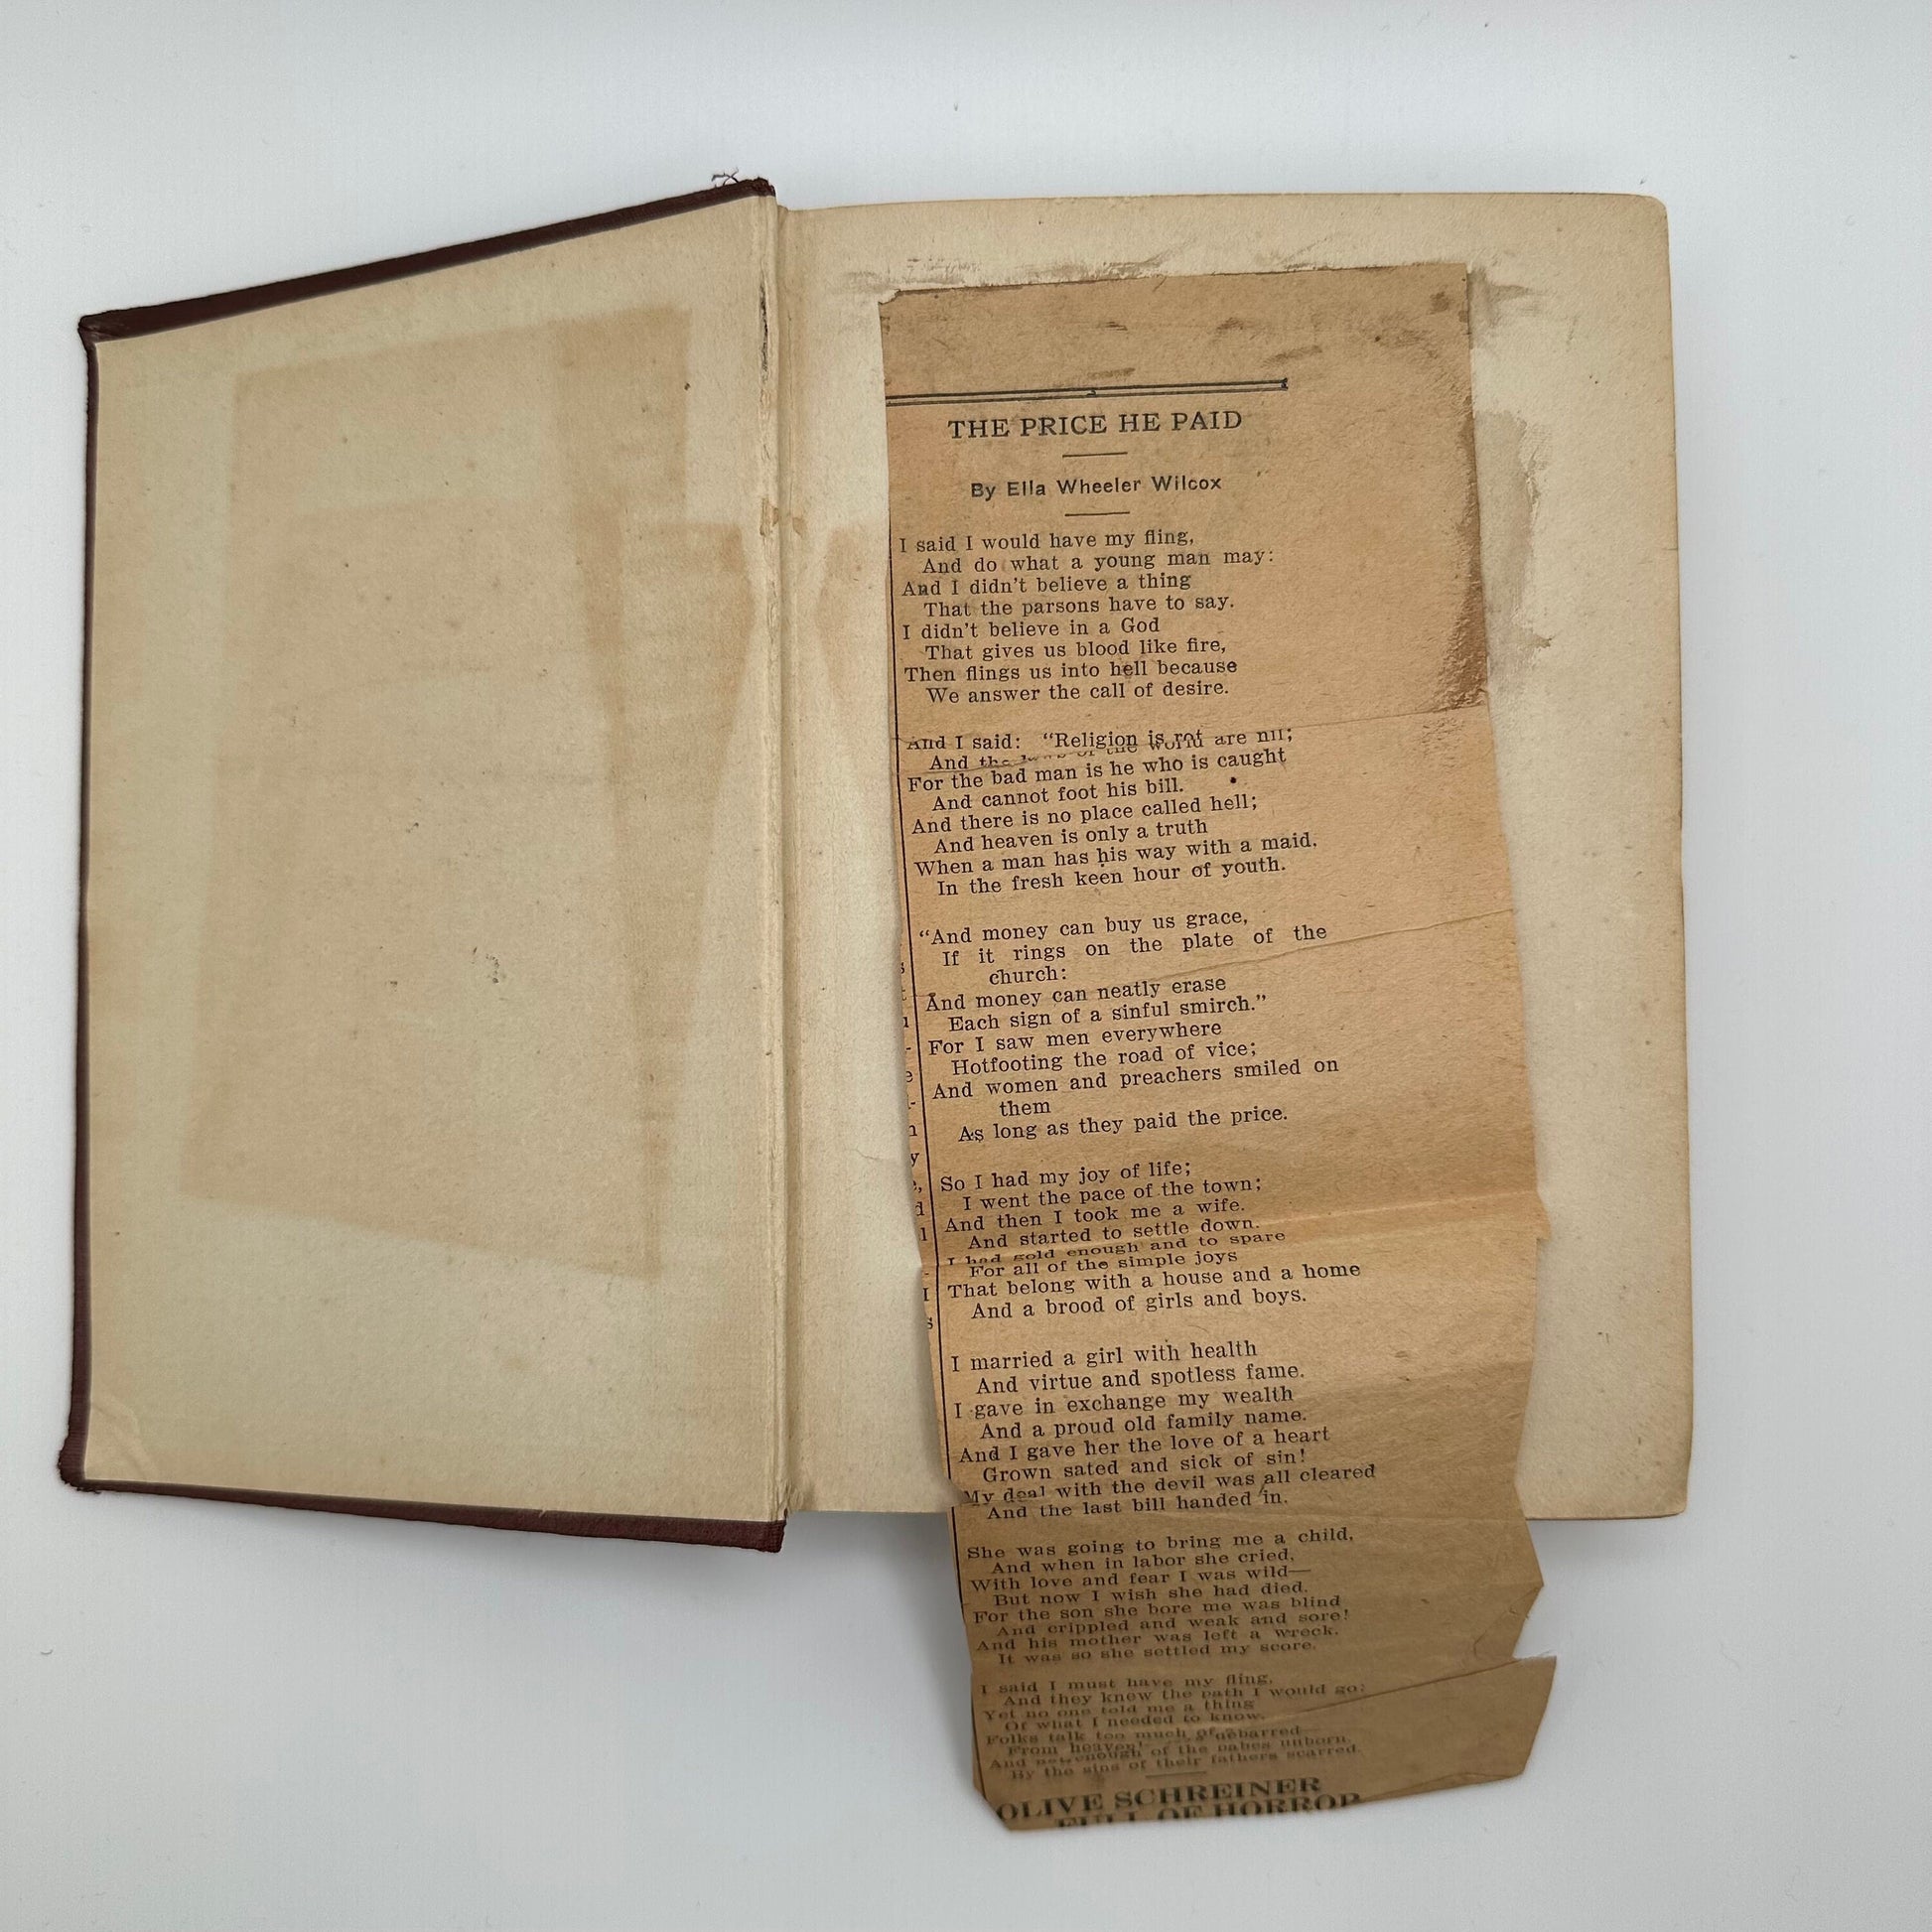 THE PRICE HE PAID
By Ella Wheeler Wilcox
I said I would have my fling,
And do what a young man may:
And I didn't believe a thing
That the parsons have to say.
I didn't believe in a God
That gives us blood like fire,
Then flings us into hell because
We answer the call of desire.
And I said: "Religion is rot
And the laws of the world are nil;
For the bad man is he who is caught
And cannot foot his bill.
And there is no place called hell;
And heaven is only a truth
When a man has his way with a maid.
In the fresh keen hour of youth.
"And money can buy us grace,
If it rings on the plate of the
church:
And money can neatly erase
Each sign of a sinful smirch."
For I saw men everywhere
Hotfooting the road of vice;
And women and preachers smiled on
them
As long as they paid the price.
So I had my joy of life;
I went the pace of the town;
And then I took me a wife.
And started to settle down.
I had gold enough and to spare
For all of the simple joys
That belong with a house and a home
And a brood of girls and boys.
I married a girl with health
And virtue and spotless fame.
I gave in exchange my wealth
And a proud old family name.
And I gave her the love of a heart
Grown sated and sick of sin!
My deal with the devil was all cleared
And the last bill handed in.
She was going to bring me a child,
And when in labor she cried,
With love and fear I was wild—
But now I wish she had died.
For the son she bore me was blind
And crippled and weak and sore!
And his mother was left a wreck.
It was so she settled my score.
I said I must have my fling,
And they knew the path I would go;
Yet no one told me a thing
Of what I needed to know.
Folks talk too much of
From heaven debarred—
And not enough of the babes unborn,
By the sins of their fathers scarred.
OLIVE SCHREINER
FULL OF HORROR